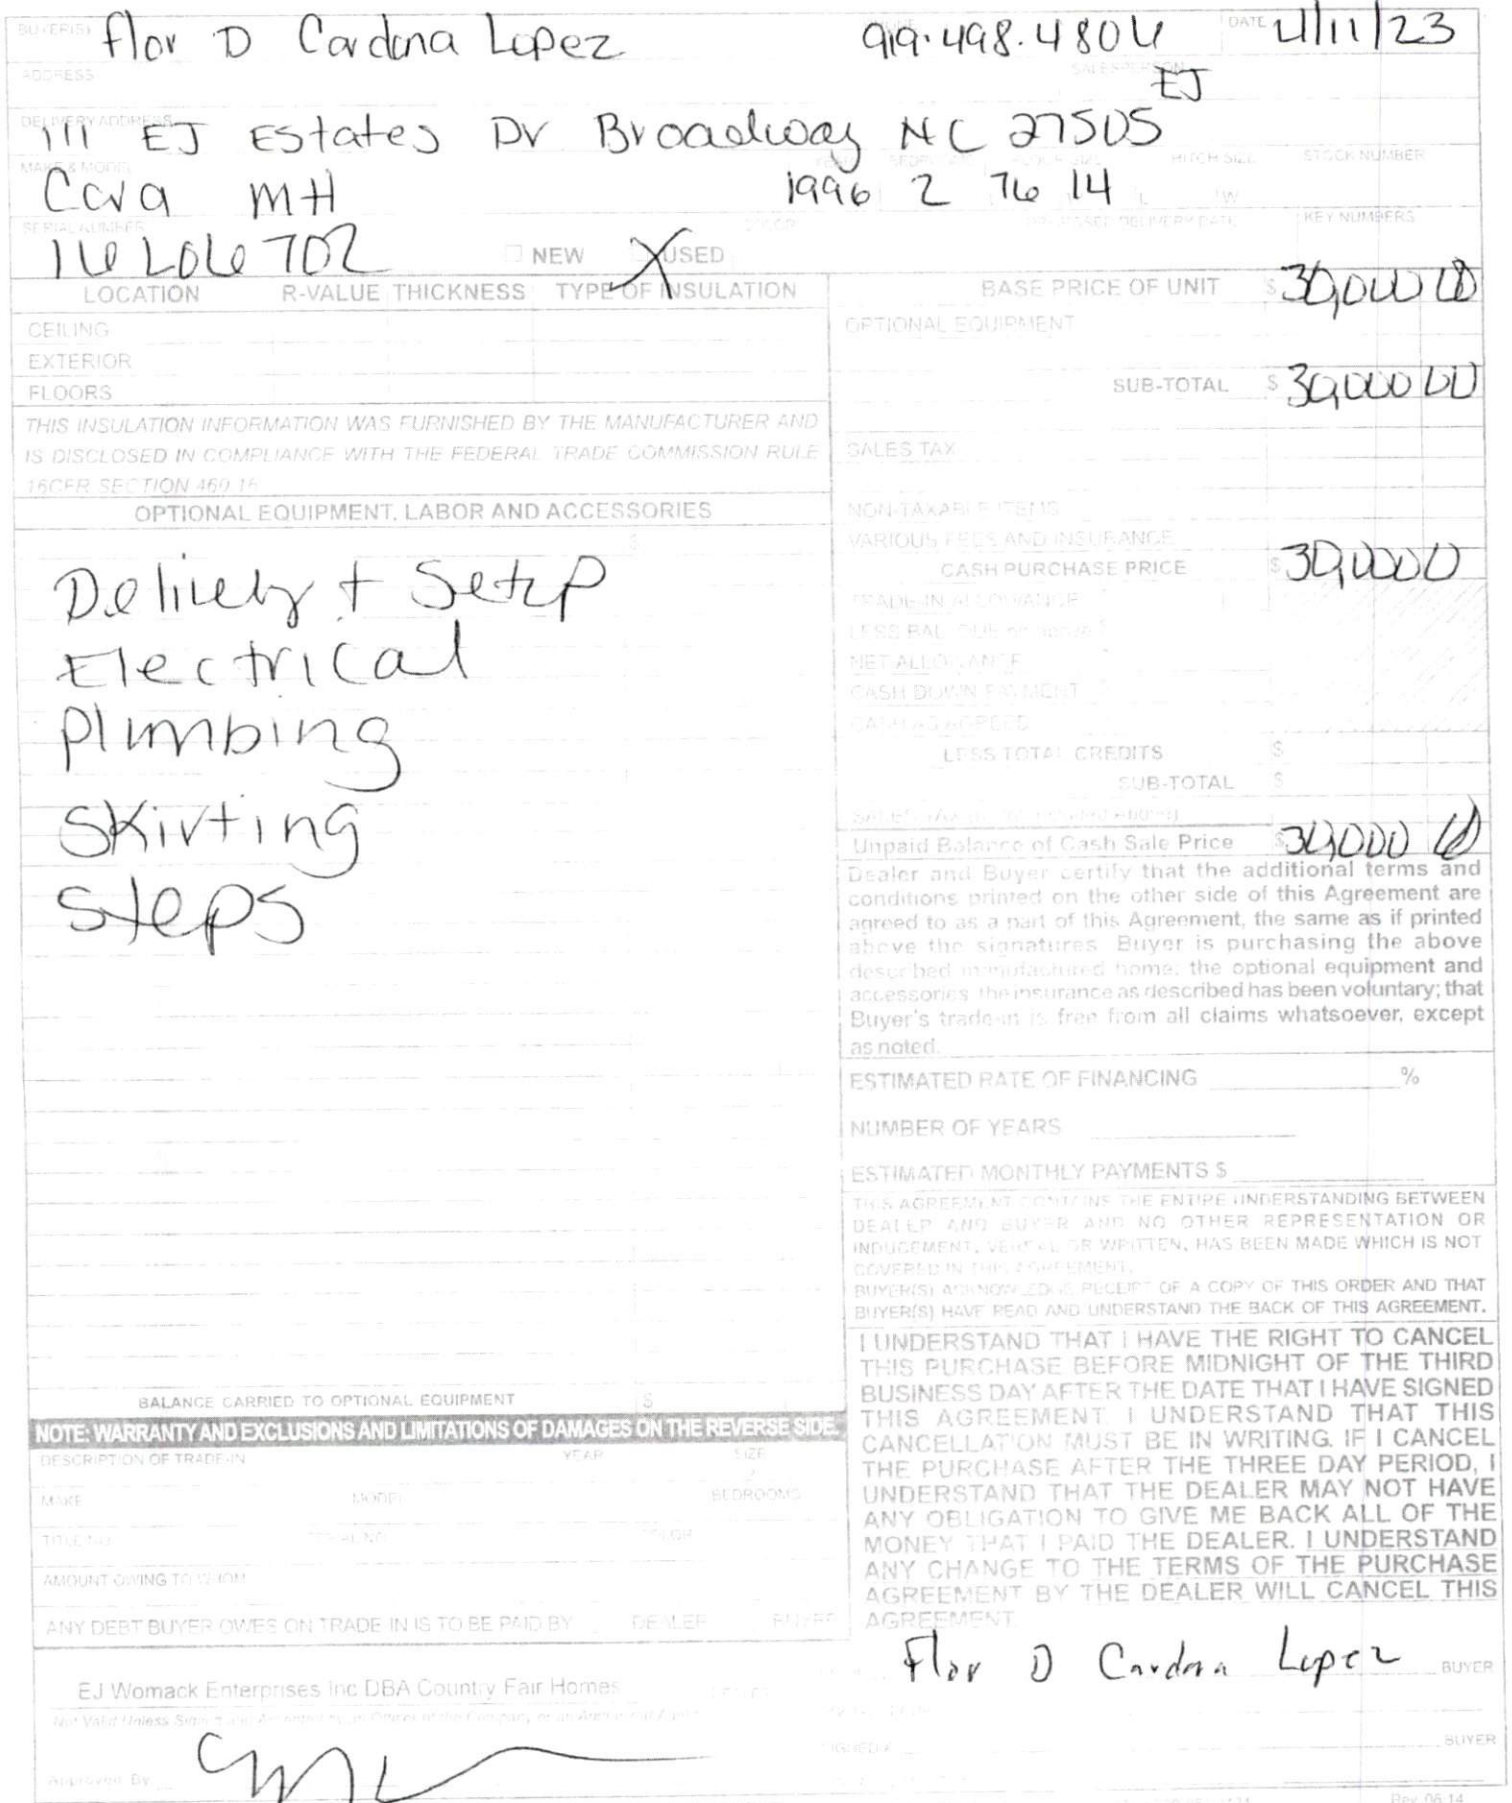 BUYER(S) Flor D Cardona Lopez 919.498.4806 DATE 4/11/23
ADDRESS SALESPERSON EJ
DELIVERY ADDRESS 111 EJ Estates Dr Broadway NC 27505
MAKE & MODEL YEAR BEDROOMS HITCH SIZE STOCK NUMBER
Cava MH 1996 2 76 14 L W
SERIAL NUMBER COLOR PROPOSED DELIVERY DATE KEY NUMBERS
NEW X USED
LOCATION R-VALUE THICKNESS TYPE OF INSULATION
CEILING
EXTERIOR
FLOORS
THIS INSULATION INFORMATION WAS FURNISHED BY THE MANUFACTURER AND
IS DISCLOSED IN COMPLIANCE WITH THE FEDERAL TRADE COMMISSION RULE
16CFR SECTION 460.16
OPTIONAL EQUIPMENT, LABOR AND ACCESSORIES
$
Delivery + Setup
Electrical
Plumbing
Skirting
Steps
BALANCE CARRIED TO OPTIONAL EQUIPMENT $
NOTE: WARRANTY AND EXCLUSIONS AND LIMITATIONS OF DAMAGES ON THE REVERSE SIDE.
DESCRIPTION OF TRADE-IN YEAR SIZE
MAKE MODEL BEDROOMS
TITLE NO. SERIAL NO. COLOR
AMOUNT OWING TO WHOM
ANY DEBT BUYER OWES ON TRADE-IN IS TO BE PAID BY DEALER BUYER
BASE PRICE OF UNIT $ 30,000 00
OPTIONAL EQUIPMENT
SUB-TOTAL $ 30,000 00
SALES TAX
NON-TAXABLE ITEMS
VARIOUS FEES AND INSURANCE
CASH PURCHASE PRICE $ 30,000 0
TRADE-IN ALLOWANCE $
LESS BAL. DUE on above $
NET ALLOWANCE
CASH DOWN PAYMENT
CASH AS AGREED
LESS TOTAL CREDITS $
SUB-TOTAL $
Unpaid Balance of Cash Sale Price $ 30,000 00
Dealer and Buyer certify that the additional terms and
conditions printed on the other side of this Agreement are
agreed to as a part of this Agreement, the same as if printed
above the signatures. Buyer is purchasing the above
described manufactured home; the optional equipment and
accessories, the insurance as described has been voluntary; that
Buyer's trade-in is free from all claims whatsoever, except
as noted.
ESTIMATED RATE OF FINANCING %
NUMBER OF YEARS
ESTIMATED MONTHLY PAYMENTS $
THIS AGREEMENT CONTAINS THE ENTIRE UNDERSTANDING BETWEEN
DEALER AND BUYER AND NO OTHER REPRESENTATION OR
INDUCEMENT, VERBAL OR WRITTEN, HAS BEEN MADE WHICH IS NOT
COVERED IN THIS AGREEMENT.
BUYER(S) ACKNOWLEDGE RECEIPT OF A COPY OF THIS ORDER AND THAT
BUYER(S) HAVE READ AND UNDERSTAND THE BACK OF THIS AGREEMENT.
I UNDERSTAND THAT I HAVE THE RIGHT TO CANCEL
THIS PURCHASE BEFORE MIDNIGHT OF THE THIRD
BUSINESS DAY AFTER THE DATE THAT I HAVE SIGNED
THIS AGREEMENT. I UNDERSTAND THAT THIS
CANCELLATION MUST BE IN WRITING. IF I CANCEL
THE PURCHASE AFTER THE THREE DAY PERIOD, I
UNDERSTAND THAT THE DEALER MAY NOT HAVE
ANY OBLIGATION TO GIVE ME BACK ALL OF THE
MONEY THAT I PAID THE DEALER. I UNDERSTAND
ANY CHANGE TO THE TERMS OF THE PURCHASE
AGREEMENT BY THE DEALER WILL CANCEL THIS
AGREEMENT.
EJ Womack Enterprises Inc DBA Country Fair Homes DEALER
Approved By
Flor D Cardona Lopez BUYER
SIGNED X BUYER
Rev. 06/14